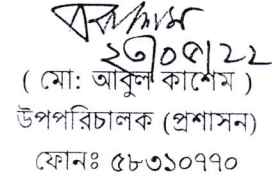 ২৩/০৫/২২
( মো: আবুল কাশেম )
উপপরিচালক (প্রশাসন)
ফোনঃ ৫৮৩১০৭৭০